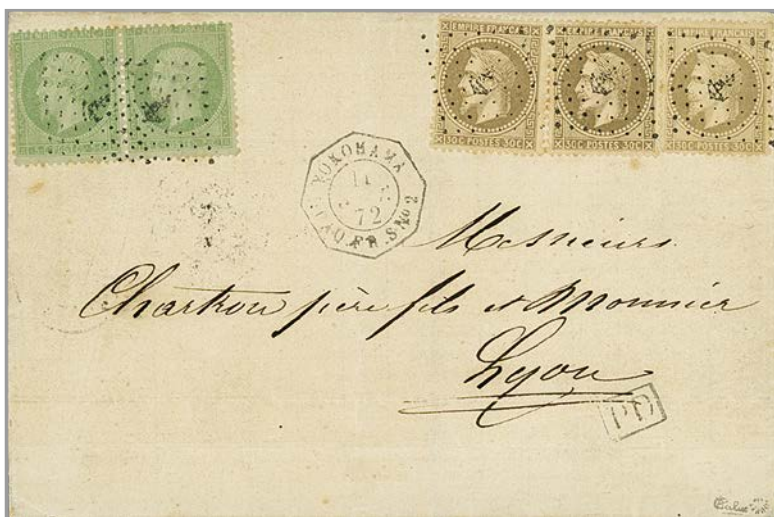 EMPIRE FRANÇAIS
30C POSTES 30C
EMPIRE FRANÇAIS
30C POSTES 30C
EMPIRE FRANÇAIS
30C POSTES 30C
YOKOHAMA
72
PAQ.FR.S No 2
Messieurs
Chartron père fils et Monnier
Lyon
PD